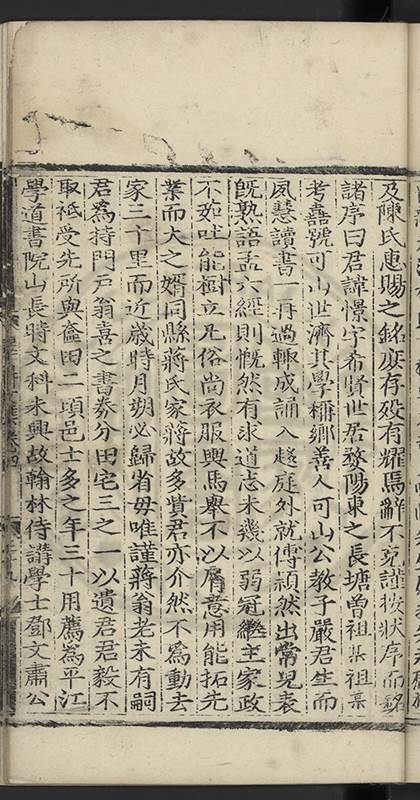 及陳氏惠賜之銘庶存歿有耀焉辭不克謹按狀序而銘
諸序曰君諱憬字希賢世居婺陽東之長塘曾祖某祖某
考嚞號可山世濟其學稱鄉善人可山公教子嚴君生而
夙慧讀書一再過輒成誦入趨庭外就傅頎然出常兒表
旣熟語孟六經則慨然有求道志未幾以弱冠繼主家政
不茹吐能樹立凡俗尚衣服輿馬舉不以屑意用能拓先
業而大之婿同縣蔣氏家蔣故多貲君亦介然不為動去
家三十里而近歲時月朔必歸省毋唯謹蔣翁老未有嗣
君為持門戶翁喜之書券分田宅三之一以遺君君毅不
取祗受先所與奩田二頃邑士多之年三十用薦為平江
學道書院山長時文科未興故翰林侍講學士鄧文肅公